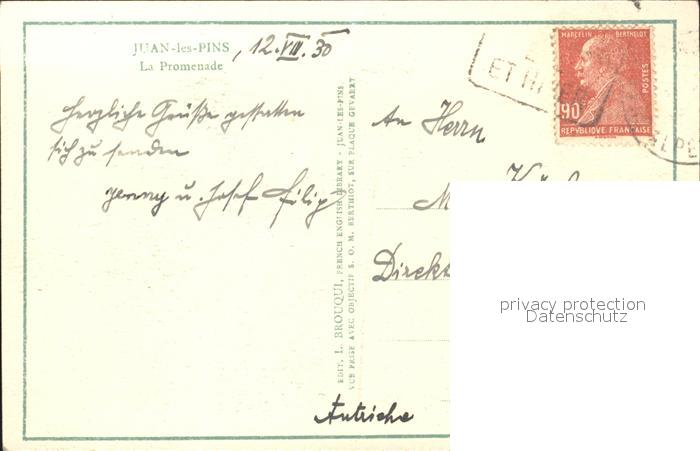 JUAN-les-PINS
La Promenade
, 12.VIII.30
Herzliche Grüße gestatten
sich zu senden
Jenny u. Josef Filip
EDIT. L. BROUQUI, FRENCH ENGLISH LIBRARY - JUAN-LES-PINS
VUE PRISE AVEC OBJECTIF S. O. M. BERTHIOT, SUR PLAQUE GEVAERT
MARCELIN BERTHELOT
POSTES
90c
REPUBLIQUE FRANÇAISE
ET
ALPE
An Herrn
M
Direkt
Autriche
privacy protection
Datenschutz